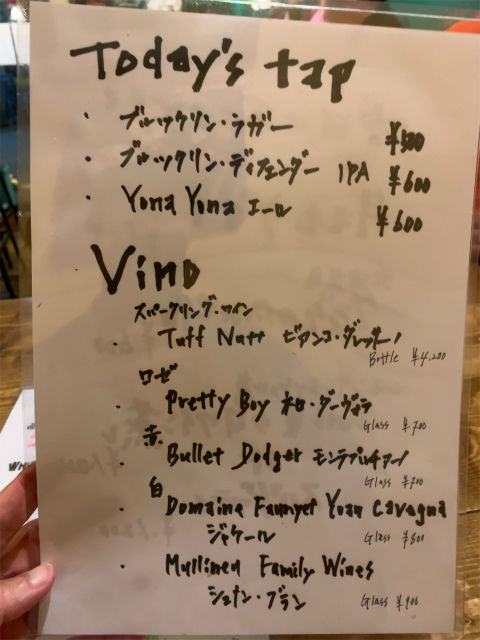 Today's tap
・ブルックリン・ラガー ¥500
・ブルックリン・ディフェンダー IPA ¥600
・Yona Yona エール ¥600
Vino
スパークリング・ワイン
・Tuff Nutt ビアンコ・ダレッキーノ
Bottle ¥4,200
ロゼ
・Pretty Boy ネロ・ダーヴォラ
Glass ¥700
赤
・Bullet Dodger モンテプルチアーノ
Glass ¥700
白
・Domaine Yoan Cavagna
ジャケール
Glass ¥800
・Mullineu Family Wines
シュナン・ブラン
Glass ¥900